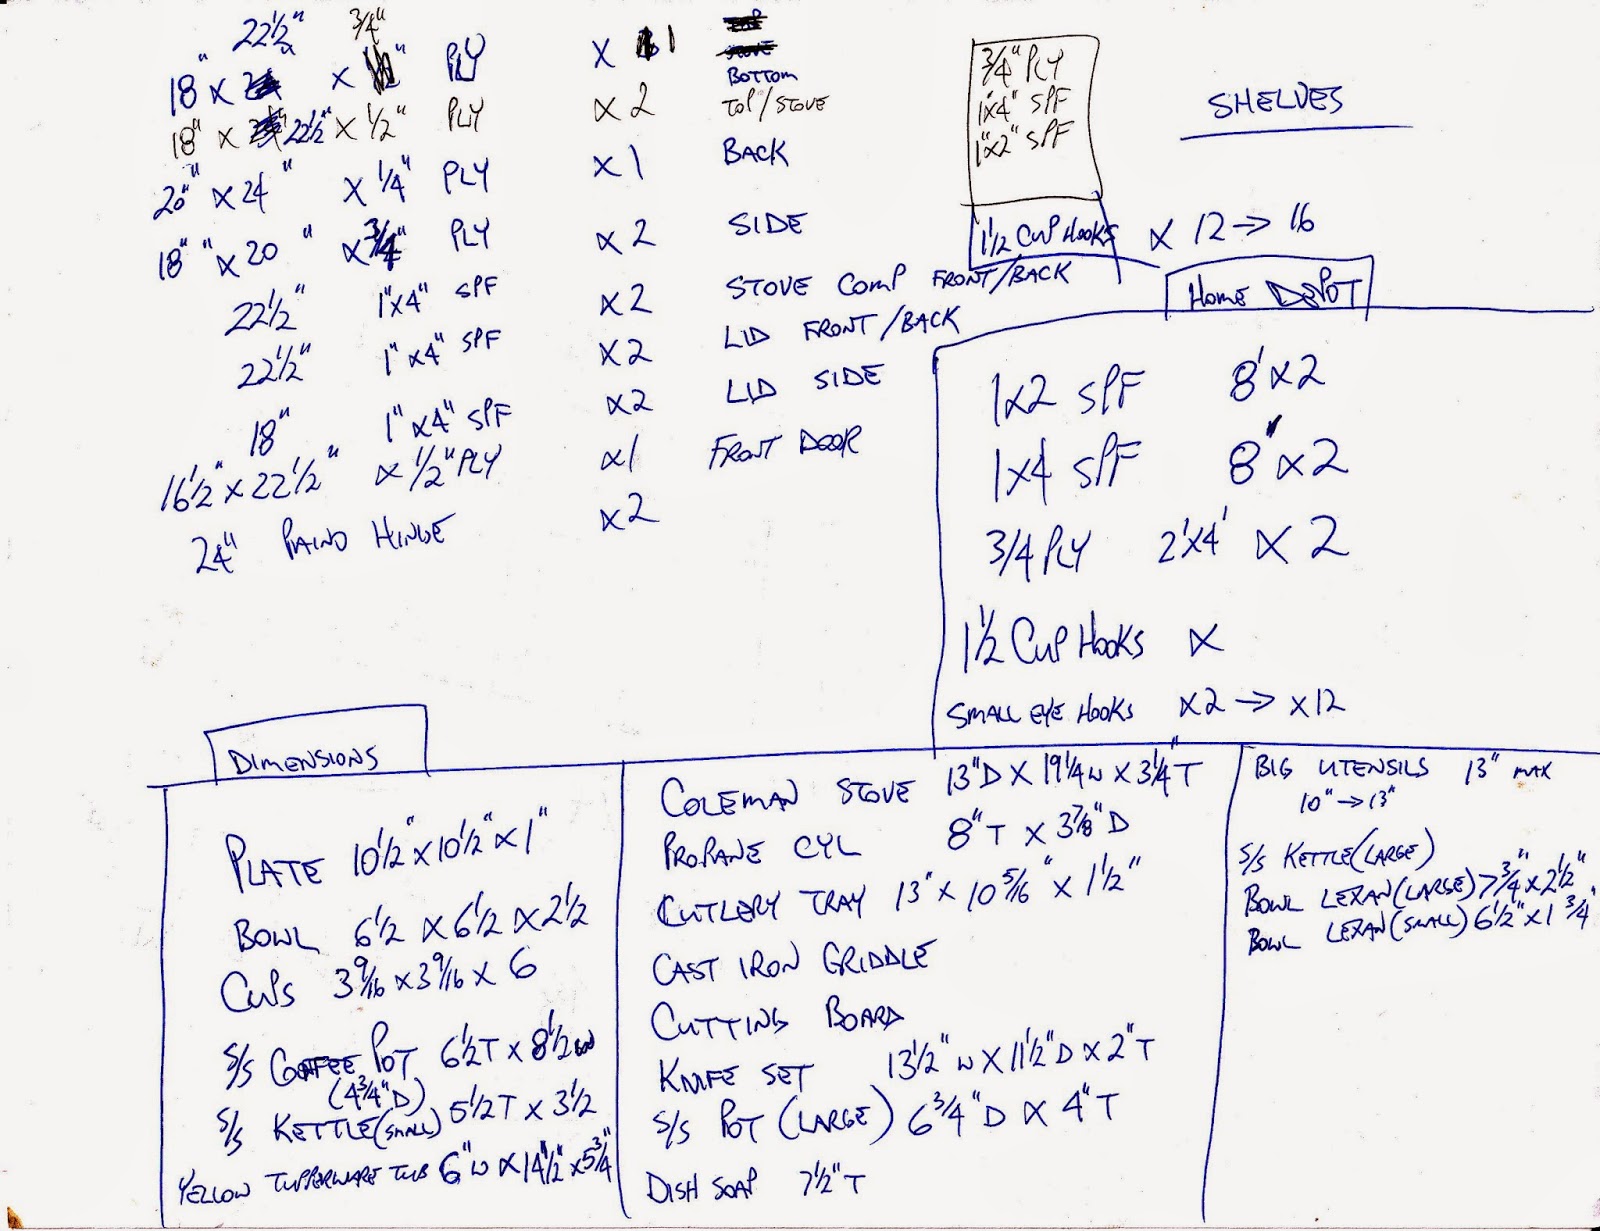 18" x 22½" x ¾" PLY x 1 BOTTOM
18" x 22½" x ½" PLY x 2 TOP/STOVE
20" x 24" x ¼" PLY x 1 BACK
18" x 20" x ¾" PLY x 2 SIDE
22½" 1"x4" SPF x 2 STOVE COMP FRONT/BACK
22½" 1"x4" SPF x 2 LID FRONT/BACK
18" 1"x4" SPF x2 LID SIDE
16½" x 22½" x ½" PLY x1 FRONT DOOR
24" PAINO HINGE x2
3/4" PLY
1"x4" SPF
1"x2" SPF
1½ CUP HOOKS x 12 → 16
SHELVES
HOME DEPOT
1x2 SPF 8' x 2
1x4 SPF 8' x 2
3/4 PLY 2'x4' x 2
1½ CUP HOOKS x
SMALL EYE HOOKS x2 → x12
DIMENSIONS
PLATE 10½" x 10½" x 1"
BOWL 6½ x 6½ x 2½
CUPS 3 9/16 x 3 9/16 x 6
S/S COFFEE POT 6½T x 8½W
(4¾"D)
S/S KETTLE (SMALL) 5½T x 3½
YELLOW TUPPERWARE TUB 6"W x 14½" x 5¾"
COLEMAN STOVE 13"D x 19¼W x 3¼"T
PROPANE CYL 8"T x 3⅞"D
CUTLERY TRAY 13" x 10 5/16" x 1½"
CAST IRON GRIDDLE
CUTTING BOARD
KNIFE SET 13½"W x 11½"D x 2"T
S/S POT (LARGE) 6¾"D x 4"T
DISH SOAP 7½"T
BIG UTENSILS 13" MAX
10" → 13"
S/S KETTLE (LARGE)
BOWL LEXAN (LARGE) 7¾" x 2½"
BOWL LEXAN (SMALL) 6½" x 1¾"